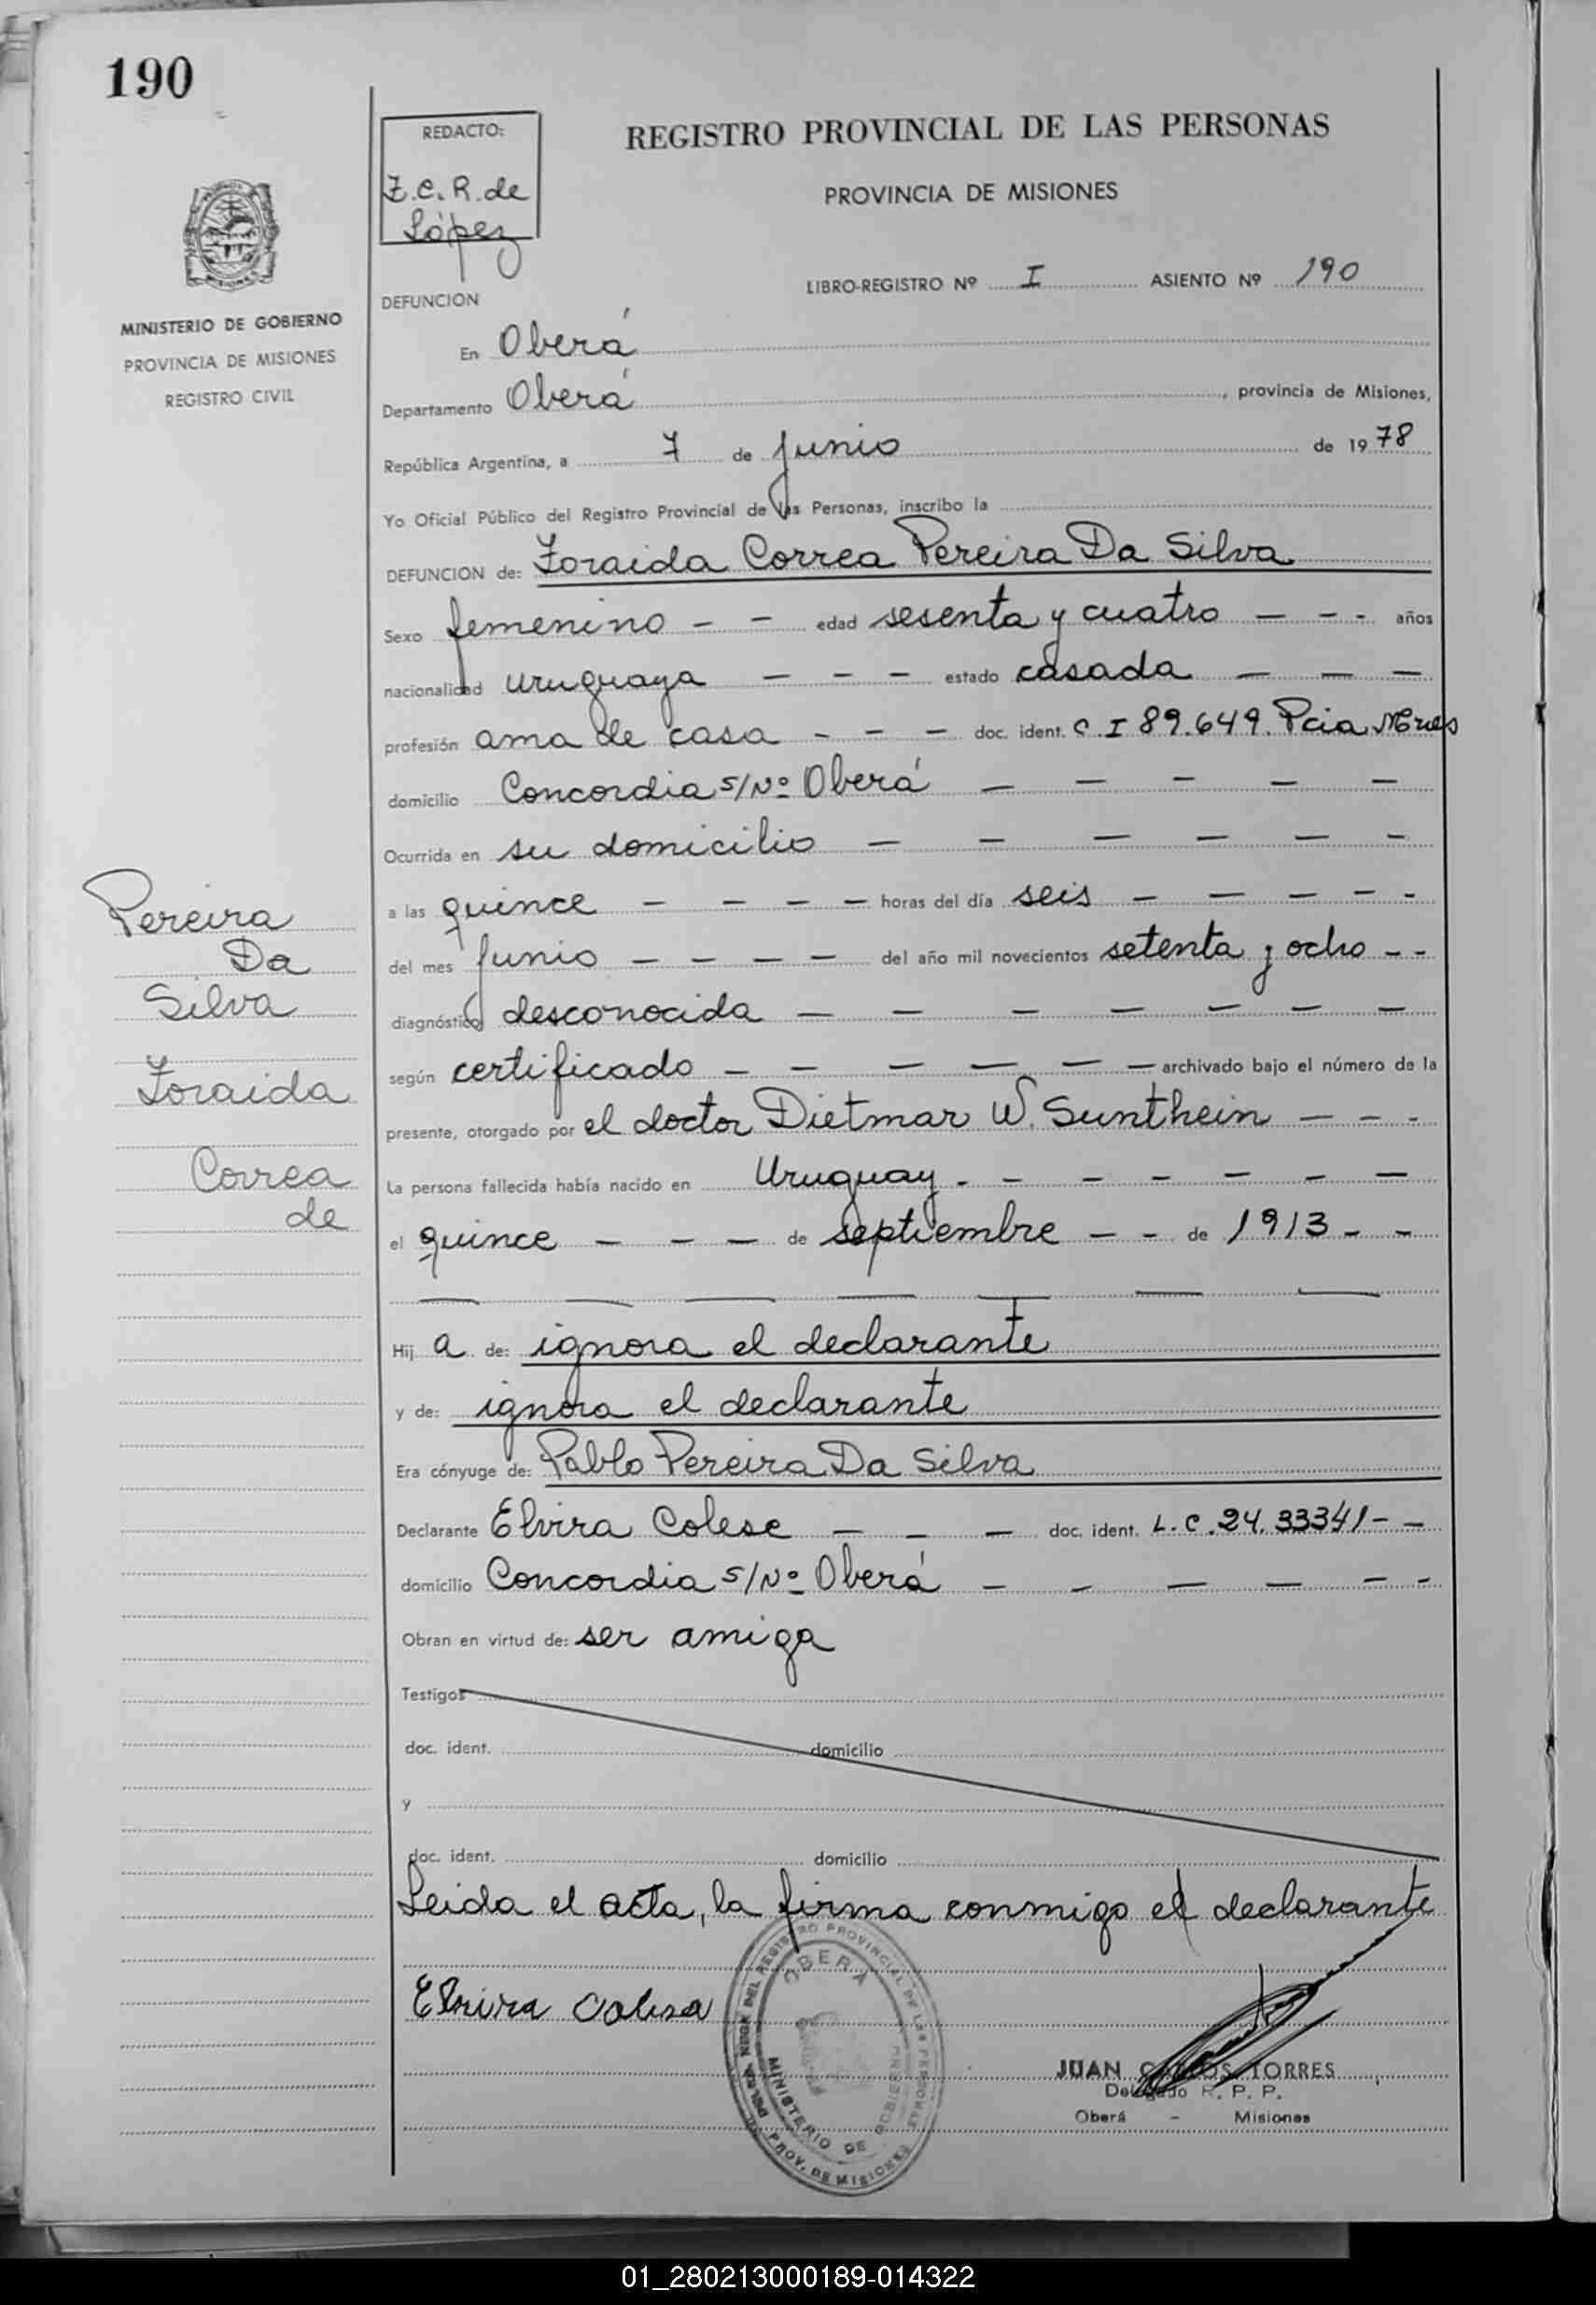 190
REDACTO:
Z.C.R. de
López
REGISTRO PROVINCIAL DE LAS PERSONAS
PROVINCIA DE MISIONES
LIBRO-REGISTRO Nº I ASIENTO Nº 190
MINISTERIO DE GOBIERNO
PROVINCIA DE MISIONES
REGISTRO CIVIL
DEFUNCION
En Oberá
Departamento Oberá, provincia de Misiones,
República Argentina, a 7 de Junio de 1978
Yo Oficial Público del Registro Provincial de las Personas, inscribo la
DEFUNCION de: Zoraida Correa Pereira Da Silva
Sexo femenino - - edad sesenta y cuatro - - - años
nacionalidad uruguaya - - - estado casada - - -
profesión ama de casa - - - doc. ident. C.I 89.649. Pcia Mnes
domicilio Concordia s/Nº Oberá - - - - -
Ocurrida en su domicilio - - - - - -
a las quince - - - - horas del día seis - - - - -
del mes Junio - - - - del año mil novecientos setenta y ocho - -
diagnóstico desconocida - - - - - - -
según certificado - - - - - archivado bajo el número de la
presente, otorgado por el doctor Dietmar W. Sunthein - - -
La persona fallecida había nacido en Uruguay. - - - - - -
el quince - - - de septiembre - - de 1913 - -
Hij a de: ignora el declarante
y de: ignora el declarante
Era cónyuge de: Pablo Pereira Da Silva
Declarante Elvira Colese - - - doc. ident. L.C.24.33341 - -
domicilio Concordia s/Nº Oberá - - - - - -
Obran en virtud de: ser amiga
Testigos
doc. ident. domicilio
y
doc. ident. domicilio
Leida el acta, la firma conmigo el declarante
Elvira Colesa
Pereira
Da
Silva
Zoraida
Correa
de
OBERÁ
MINISTERIO DE GOBIERNO
PROV. DE MISIONES
JUAN CARLOS TORRES
Delegado R. P. P.
Oberá - Misiones
01_280213000189-014322